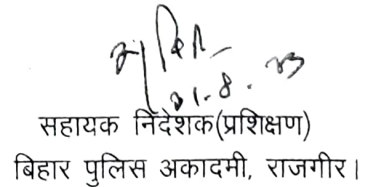 सहायक निदेशक(प्रशिक्षण)
बिहार पुलिस अकादमी, राजगीर।